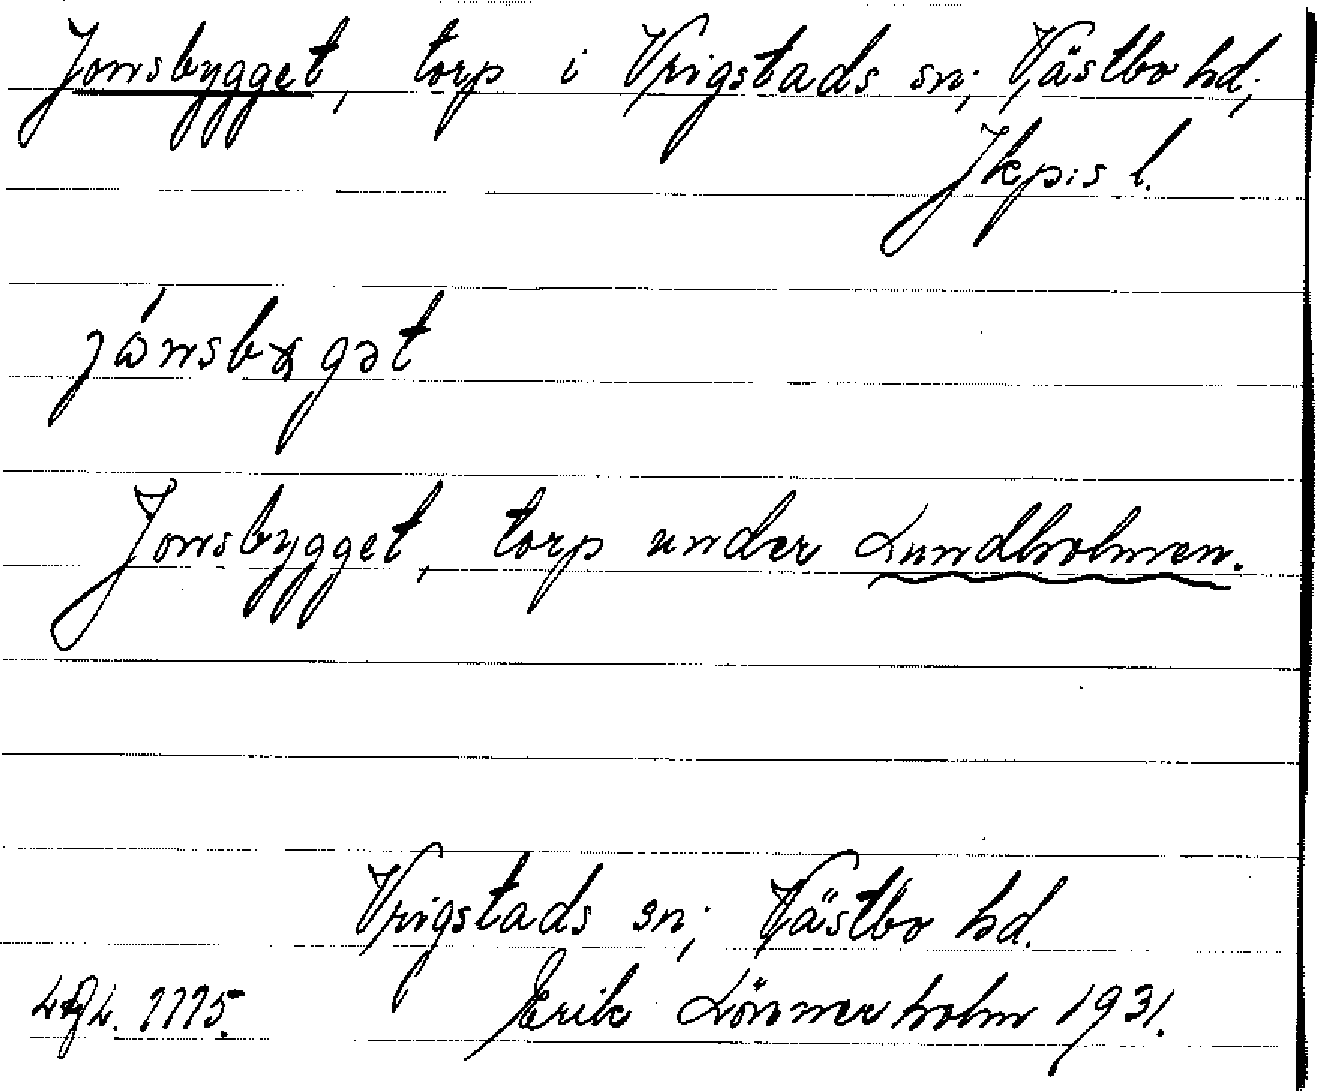 Jonsbygget, torp i Vrigstads sn; Västbo hd;
Jkpis l.
jónsbygət
Jonsbygget, torp under Lundholmen.
Vrigstads sn; Västbo hd.
Erik Lönnerholm 1931.